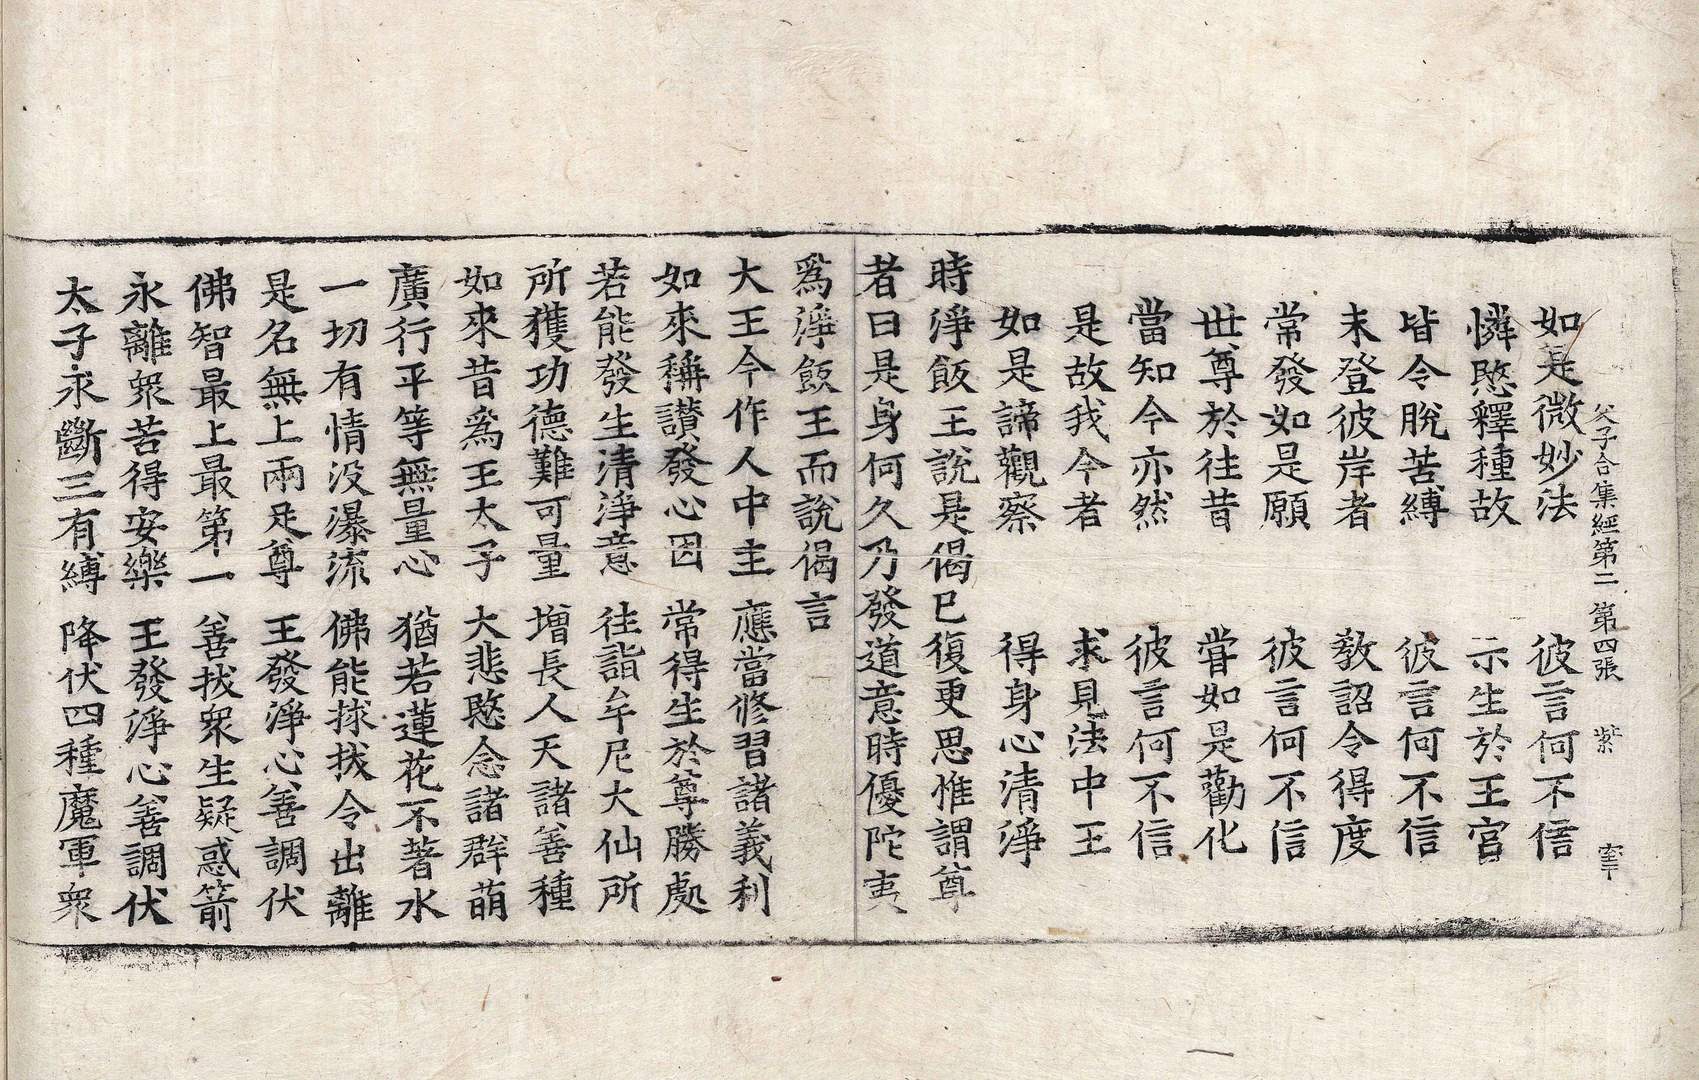 父子合集經第二 第四張 紫
如是微妙法 彼言何不信
憐愍釋種故 示生於王宮
皆令脫苦縛 彼言何不信
未登彼岸者 教詔令得度
常發如是願 彼言何不信
世尊於往昔 嘗如是勸化
當知今亦然 彼言何不信
是故我今者 求見法中王
如是諦觀察 得身心清淨
時淨飯王說是偈已復更思惟謂尊
者曰是身何久乃發道意時優陀夷
爲淨飯王而說偈言
大王今作人中主 應當修習諸義利
如來稱讃發心因 常得生於尊勝處
若能發生清淨意 往詣牟尼大仙所
所獲功德難可量 增長人天諸善種
如來昔爲王太子 大悲愍念諸群萠
廣行平等無量心 猶若蓮花不著水
一切有情没瀑流 佛能救拔令出離
是名無上兩足尊 王發淨心善調伏
佛智最上最第一 善拔衆生疑惑箭
永離衆苦得安樂 王發淨心善調伏
太子永斷三有縛 降伏四種魔軍衆